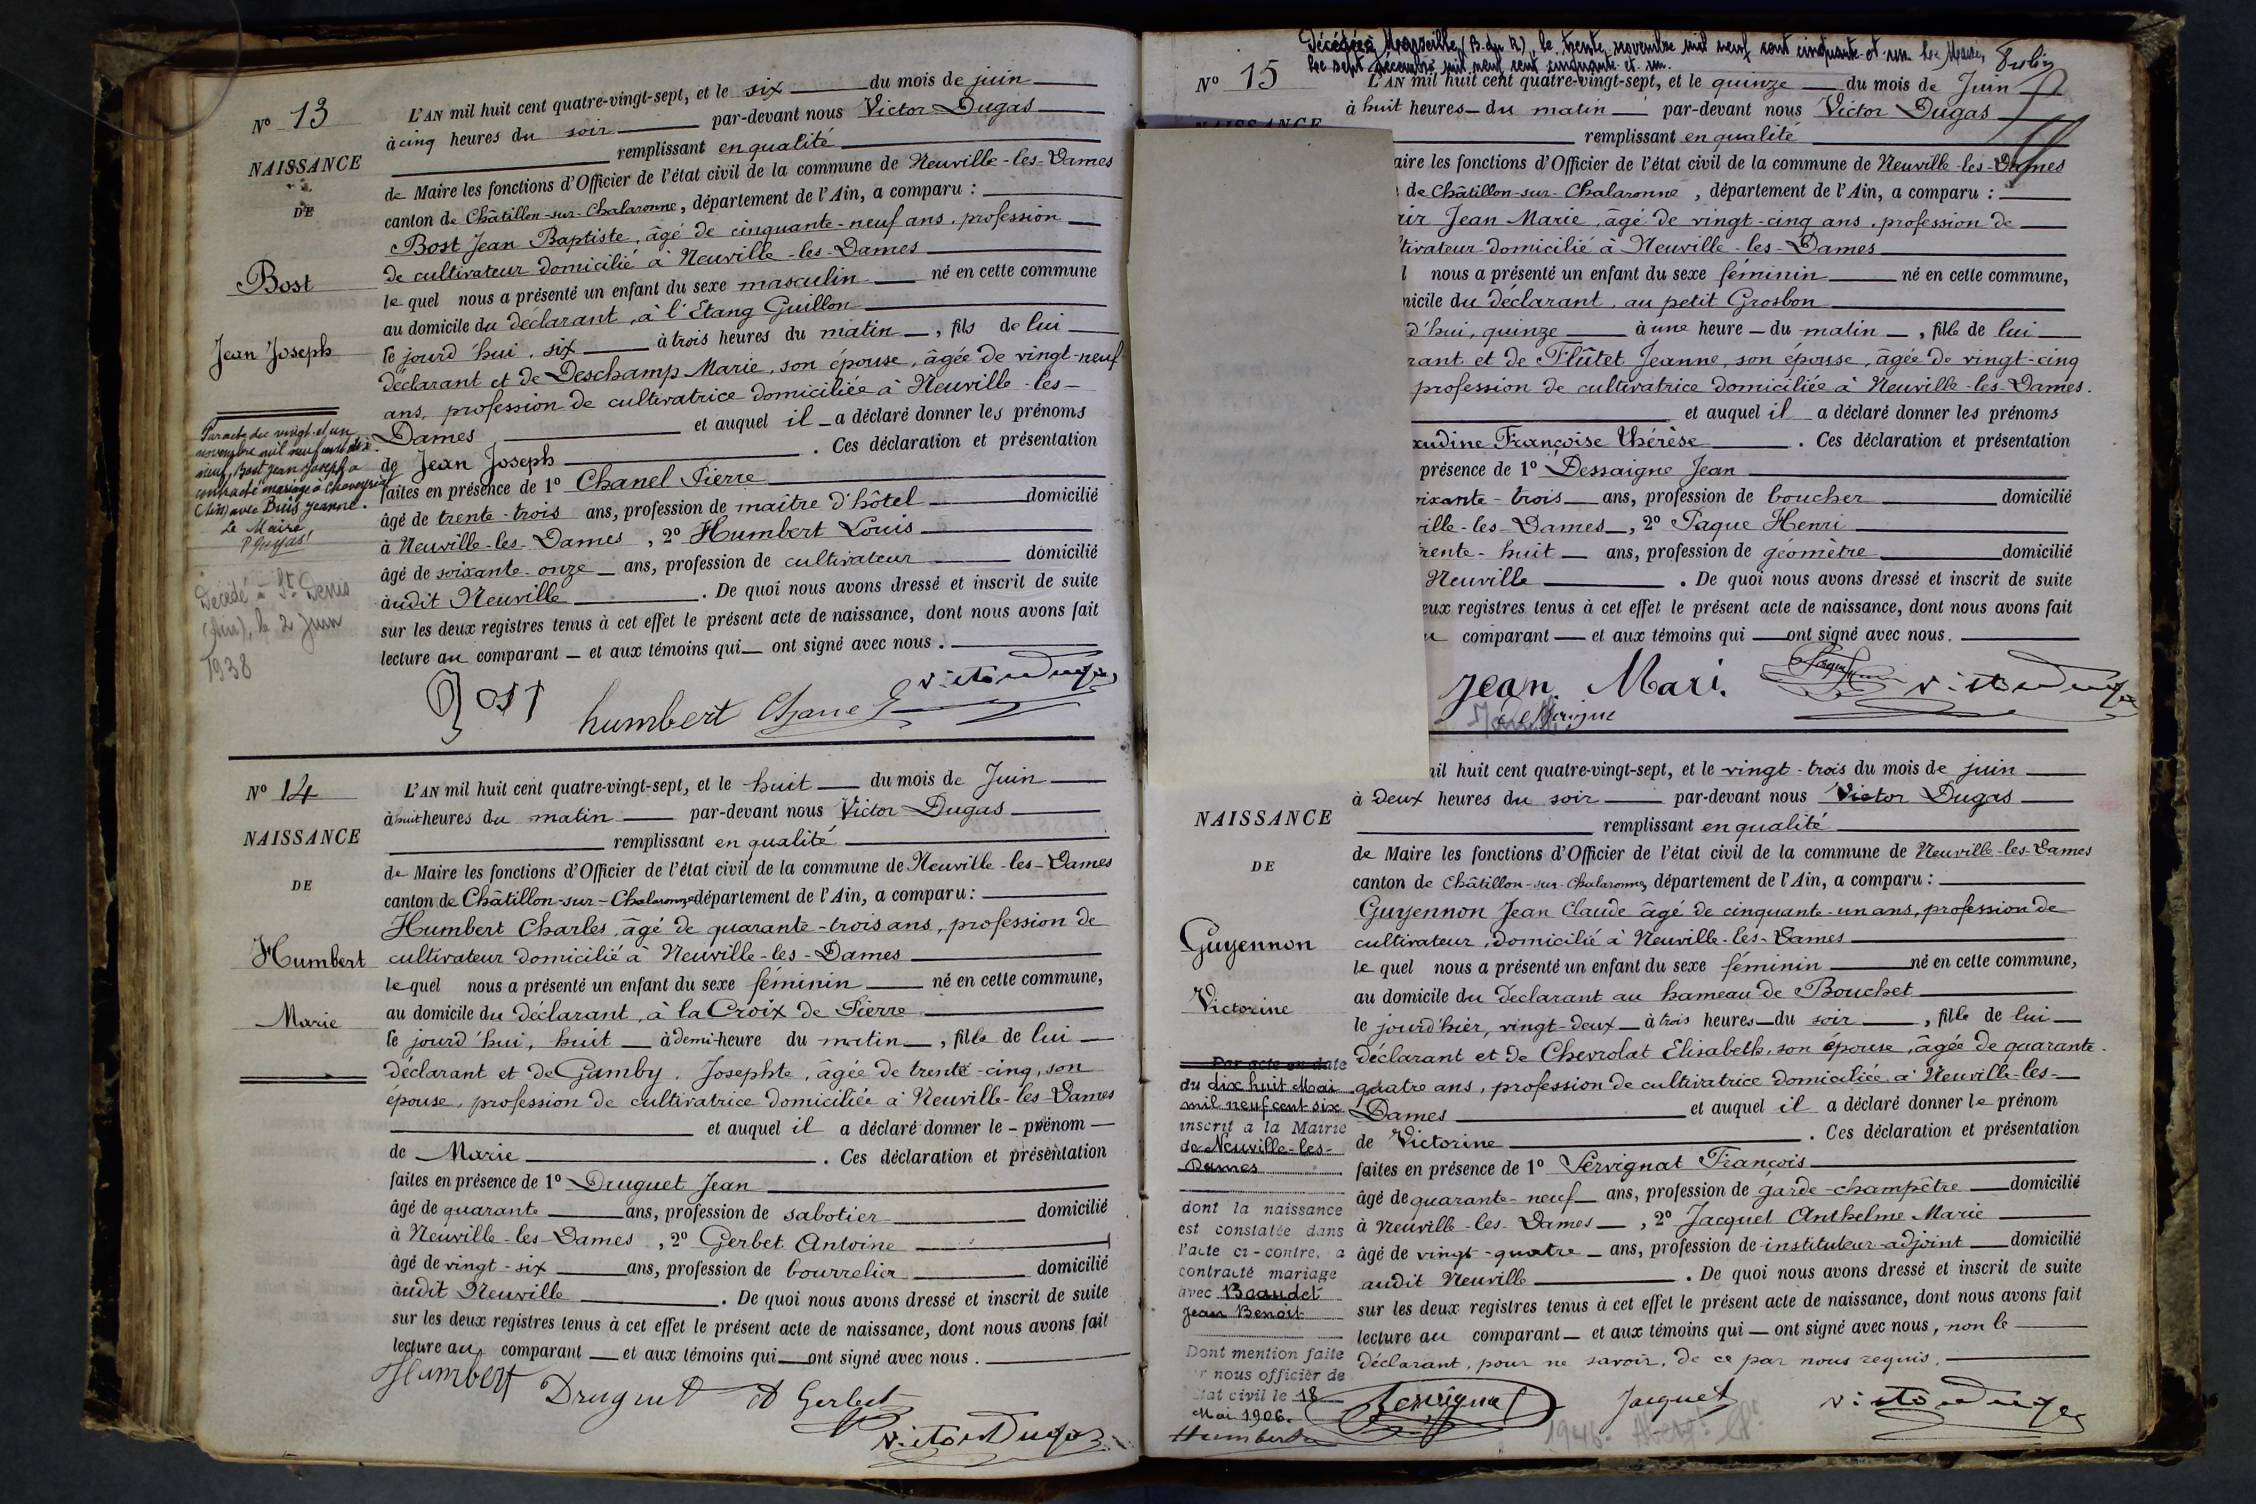 Nº 13
NAISSANCE
DE
Bost
Jean Joseph
Par acte du vingt-et-un
novembre mil neuf cent dix
neuf, Bost Jean Joseph a
contracté mariage à Chaveyriat
(Ain) avec Buis Jeanne.
Le Maire,
Décédé à St Denis
(Ain), le 2 Juin
1938
L'AN mil huit cent quatre-vingt-sept, et le six du mois de juin
à cinq heures du soir par-devant nous Victor Dugas
remplissant en qualité
de Maire les fonctions d'Officier de l'état civil de la commune de Neuville-les-Dames
canton de Châtillon-sur-Chalaronne, département de l'Ain, a comparu :
Bost Jean Baptiste, âgé de cinquante-neuf ans, profession
de cultivateur domicilié à Neuville-les-Dames
le quel nous a présenté un enfant du sexe masculin né en cette commune
au domicile du déclarant, à l'Etang Guillon
le jourd'hui, six à trois heures du matin, fils de lui
déclarant et de Deschamp Marie, son épouse, âgée de vingt-neuf
ans, profession de cultivatrice domiciliée à Neuville-les-
Dames et auquel il a déclaré donner les prénoms
de Jean Joseph. Ces déclaration et présentation
faites en présence de 1º Chanel Pierre
âgé de trente-trois ans, profession de maître d'hôtel domicilié
à Neuville-les-Dames, 2º Humbert Louis
âgé de soixante-onze ans, profession de cultivateur domicilié
audit Neuville. De quoi nous avons dressé et inscrit de suite
sur les deux registres tenus à cet effet le présent acte de naissance, dont nous avons fait
lecture au comparant et aux témoins qui ont signé avec nous.
Bost humbert Chanel Victor Dugas
Nº 14
NAISSANCE
DE
Humbert
Marie
L'AN mil huit cent quatre-vingt-sept, et le huit du mois de Juin
à huit heures du matin par-devant nous Victor Dugas
remplissant en qualité
de Maire les fonctions d'Officier de l'état civil de la commune de Neuville-les-Dames
canton de Châtillon-sur-Chalaronne département de l'Ain, a comparu :
Humbert Charles, âgé de quarante-trois ans, profession de
cultivateur domicilié à Neuville-les-Dames
le quel nous a présenté un enfant du sexe féminin né en cette commune,
au domicile du déclarant, à la Croix de Pierre
le jourd'hui, huit à demi-heure du matin, fille de lui
déclarant et de Gamby, Josephte, âgée de trente-cinq, son
épouse, profession de cultivatrice domiciliée à Neuville-les-Dames
et auquel il a déclaré donner le prénom
de Marie. Ces déclaration et présentation
faites en présence de 1º Druguet Jean
âgé de quarante ans, profession de sabotier domicilié
à Neuville-les-Dames, 2º Gerbet Antoine
âgé de vingt-six ans, profession de bourrelier domicilié
audit Neuville. De quoi nous avons dressé et inscrit de suite
sur les deux registres tenus à cet effet le présent acte de naissance, dont nous avons fait
lecture au comparant et aux témoins qui ont signé avec nous.
Humbert Druguet A Gerbet
Victor Dugas
Décédée à Marseille (B. du R), le trente novembre mil neuf cent cinquante-et-un. Le Maire,
Le sept décembre mil neuf cent cinquante et un.
Nº 15
NAISSANCE
L'AN mil huit cent quatre-vingt-sept, et le quinze du mois de Juin
à huit heures du matin par-devant nous Victor Dugas
remplissant en qualité
aire les fonctions d'Officier de l'état civil de la commune de Neuville-les-Dames
de Châtillon-sur-Chalaronne, département de l'Ain, a comparu :
Jean Marie, âgé de vingt-cinq ans, profession de
ltivateur domicilié à Neuville-les-Dames
l nous a présenté un enfant du sexe féminin né en cette commune,
micile du déclarant, au petit Grosbon
d'hui, quinze à une heure du matin, fille de lui
rant et de Flûtet Jeanne, son épouse, âgée de vingt-cinq
profession de cultivatrice domiciliée à Neuville-les-Dames.
et auquel il a déclaré donner les prénoms
audine Françoise Thérèse. Ces déclaration et présentation
présence de 1º Dessaigne Jean
oixante-trois ans, profession de boucher domicilié
ville-les-Dames, 2º Paque Henri
trente-huit ans, profession de géomètre domicilié
Neuville. De quoi nous avons dressé et inscrit de suite
eux registres tenus à cet effet le présent acte de naissance, dont nous avons fait
u comparant et aux témoins qui ont signé avec nous.
Jean Mari. Victor Dugas
NAISSANCE
DE
Guyennon
Victorine
Par acte en date
du dix huit Mai
mil neuf cent six
inscrit à la Mairie
de Neuville-les-
Dames
dont la naissance
est constatée dans
l'acte ci-contre, a
contracté mariage
avec Beaudet
Jean Benoît
Dont mention faite
r nous officier de
état civil le 18
Mai 1906.
Humbert
mil huit cent quatre-vingt-sept, et le vingt-trois du mois de juin
à deux heures du soir par-devant nous Victor Dugas
remplissant en qualité
de Maire les fonctions d'Officier de l'état civil de la commune de Neuville-les-Dames
canton de Châtillon-sur-Chalaronne, département de l'Ain, a comparu :
Guyennon Jean Claude âgé de cinquante-un ans, profession de
cultivateur, domicilié à Neuville-les-Dames
le quel nous a présenté un enfant du sexe féminin né en cette commune,
au domicile du déclarant au hameau de Bouchet
le jourd'hier, vingt-deux à trois heures du soir, fille de lui
déclarant et de Chevrolat Elisabeth, son épouse, âgée de quarante-
quatre ans, profession de cultivatrice domiciliée à Neuville-les-
Dames et auquel il a déclaré donner le prénom
de Victorine. Ces déclaration et présentation
faites en présence de 1º Servignat François
âgé de quarante-neuf ans, profession de garde-champêtre domicilié
à Neuville-les-Dames, 2º Jacquet Anthelme Marie
âgé de vingt-quatre ans, profession de instituteur-adjoint domicilié
audit Neuville. De quoi nous avons dressé et inscrit de suite
sur les deux registres tenus à cet effet le présent acte de naissance, dont nous avons fait
lecture au comparant et aux témoins qui ont signé avec nous, non le
déclarant, pour ne savoir, de ce par nous requis.
Servignat Jacquet Victor Dugas